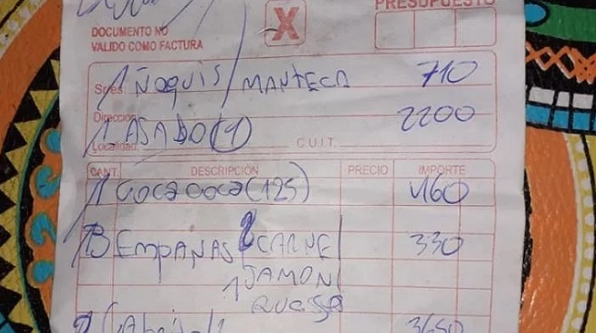 PRESUPUESTO
X
DOCUMENTO NO
VALIDO COMO FACTURA
Sres. 1 ÑOQUIS / MANTECA 710
Dirección 1 ASADO (1) 2200
Localidad C.U.I.T.
CANT. DESCRIPCIÓN PRECIO IMPORTE
1 COCA COCA (125) 460
3 EMPANAS 2 CARNE 330
1 JAMON
QUESSO
3650